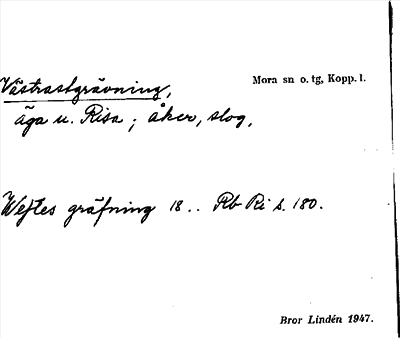 Västrastgrävning, Mora sn o. tg, Kopp. l.
äga u. Risa; åker, slog,
Wejtes gräfning 18.. Rb Ri s. 180.
Bror Lindén 1947.